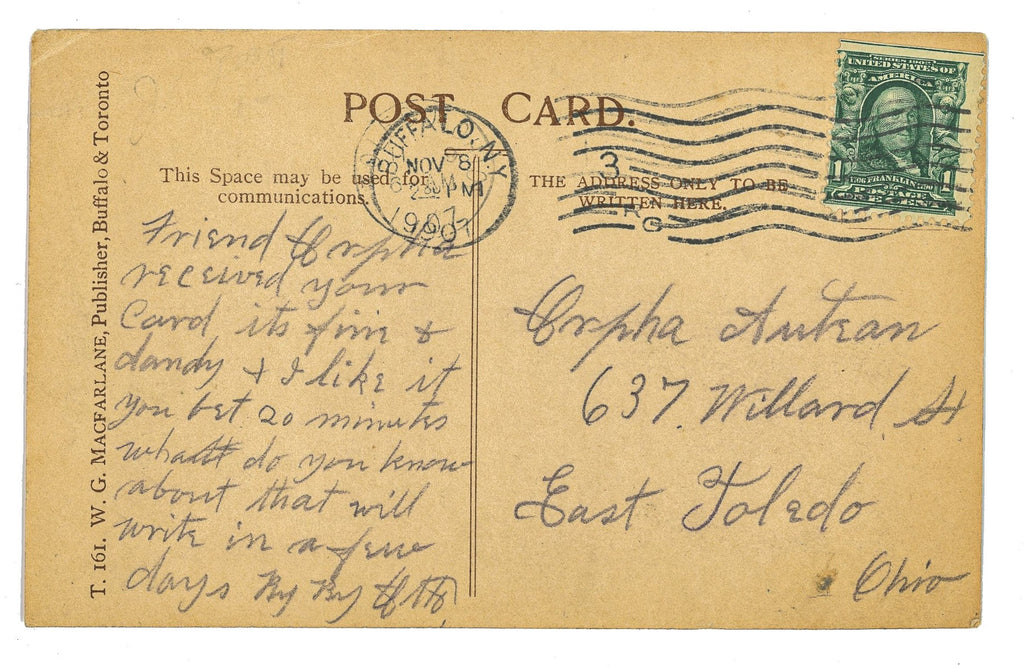 POST CARD.
This Space may be used for
communications.
THE ADDRESS ONLY TO BE
WRITTEN HERE.
T. 161. W. G. MACFARLANE, Publisher, Buffalo & Toronto
BUFFALO, N.Y.
NOV 8
PM
1907
3
RG
SERIES 1902
UNITED STATES OF
AMERICA
1 1
FRANKLIN
POSTAGE
ONE CENT
Friend Orpha
received your
Card its fine &
dandy & I like it
you bet 20 minutes
what do you know
about that will
write in a few
days By By
Orpha Autean
637 Willard St
East Toledo
Ohio